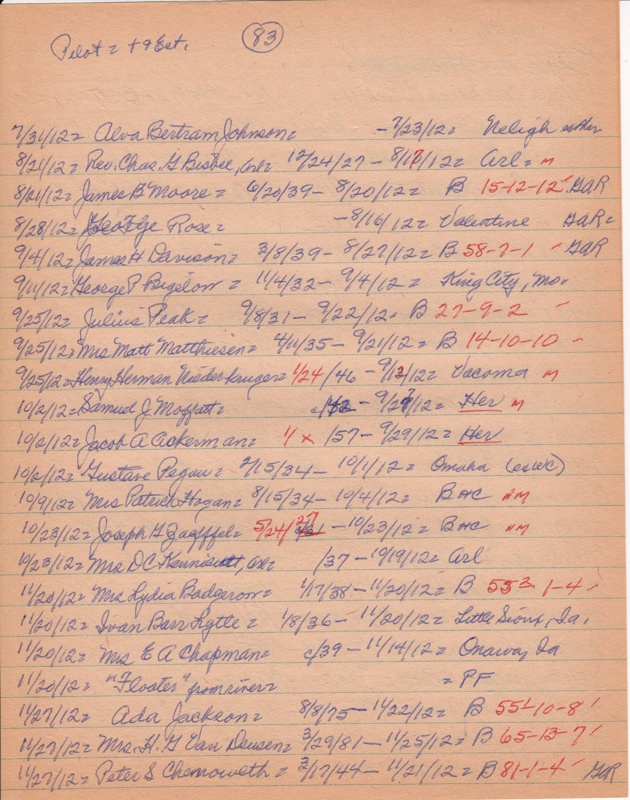 Pilot = + 9 Est. 83
7/31/12= Alva Bertram Johnson= -7/23/12= Neligh
8/21/12= Rev. Chas. G Bisbee, Arl= 12/24/27 - 8/17/12= Arl= M
8/21/12= James B Moore= 6/20/39 - 8/20/12= B 15-12-12 GAR
8/28/12= George Rose= -8/16/12= Valentine GAR=
9/4/12= James H Davison= 3/8/39 - 8/27/12= B 58-7-1 GAR
9/11/12= George P Bigelow= 11/4/32 - 9/4/12= King City, Mo.
9/25/12= Julius Peak= 9/8/31 - 9/22/12= B 27-9-2
9/25/12= Mrs Matt Matthiesen= 4/11/35 - 9/21/12= B 14-10-10
9/25/12= Henry Herman Niederkruger= 1/24/46 - 9/12/12= Vacoma M
10/2/12= Samuel J Moffatt= - 9/27/12= Her M
10/2/12= Jacob A Ackerman= 1/x/57 - 9/29/12= Her
10/2/12= Gustave Pegau= 2/15/34 - 10/1/12= Omaha
10/9/12= Mrs Patrick Hogan= 8/15/34 - 10/4/12= BHC NM
10/23/12= Joseph G 5/24/27 - 10/23/12= BHC NM
10/23/12= Mrs D C Arl= /37 - 10/19/12= Arl
11/20/12= Mrs Lydia Badgerow= 1/17/38 - 11/20/12= B 55-1-4
11/20/12= Ivan Barr Lytle= 1/8/36 - 11/20/12= Little Sioux, Ia,
11/20/12= Mrs E A Chapman= c/39 - 11/14/12= Onawa, Ia
11/20/12= "Floater" from river= = PF
11/27/12= Ada Jackson= 8/8/75 - 11/22/12= B 55-10-8
11/27/12= Mrs. H. G Van Deusen= 3/29/81 - 11/25/12= B 65-13-7
11/27/12= Peter S Chenoweth= 3/17/44 - 11/21/12= B 81-1-4 GAR